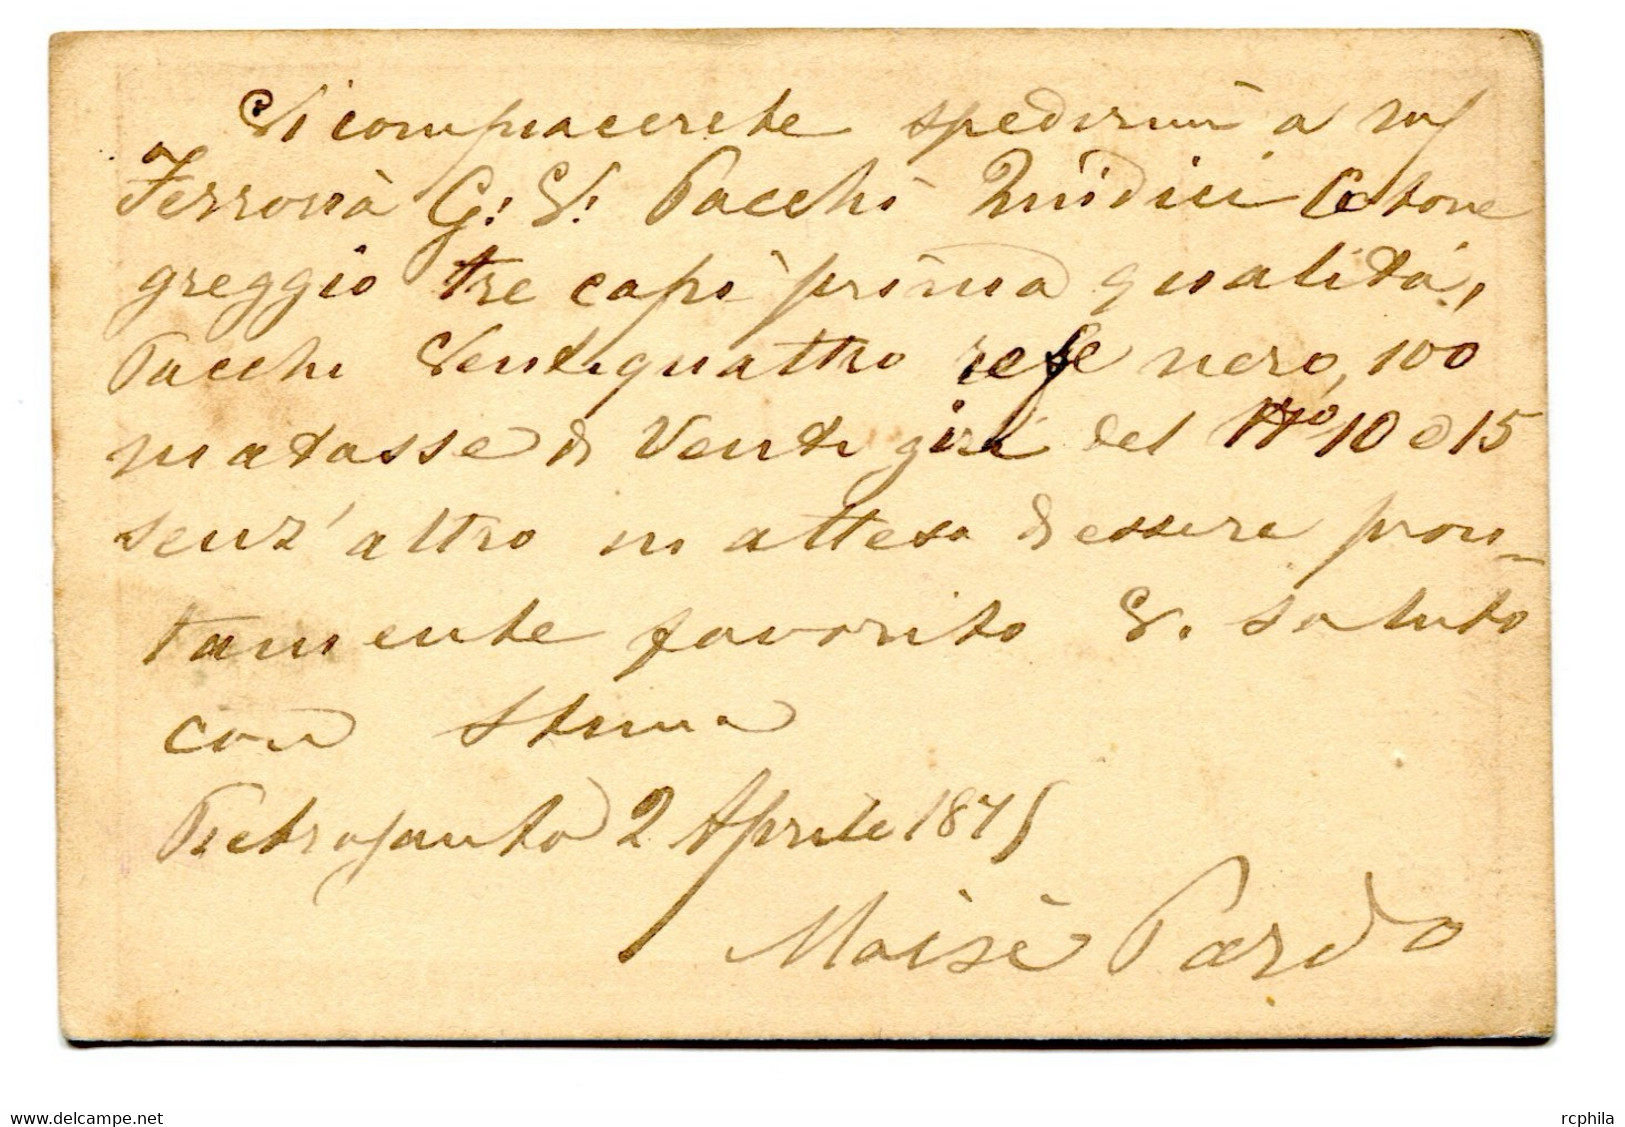 Vi compiacerete spedirmi a mf
Ferrovia G. V. Pacchi Quidici Cotone
greggio tre capi prima qualità,
Pacchi Ventiquattro refe nero, 100
matasse di Venti giri del No 10 e 15
senz'altro in attesa d'essere pron-
tamente favorito V. saluto
con stima
Pietrasanta 2 Aprile 1875
Moisè Pardo
rcphila